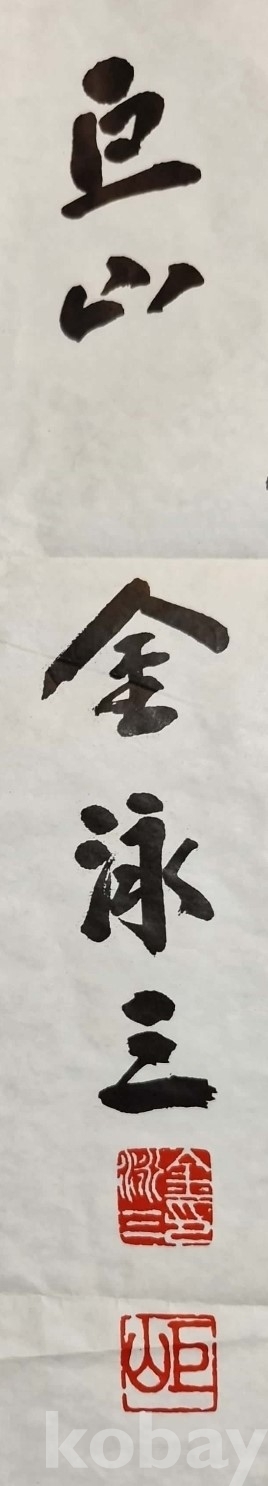 巨山 金泳三
金印
泳三
巨山
kobay